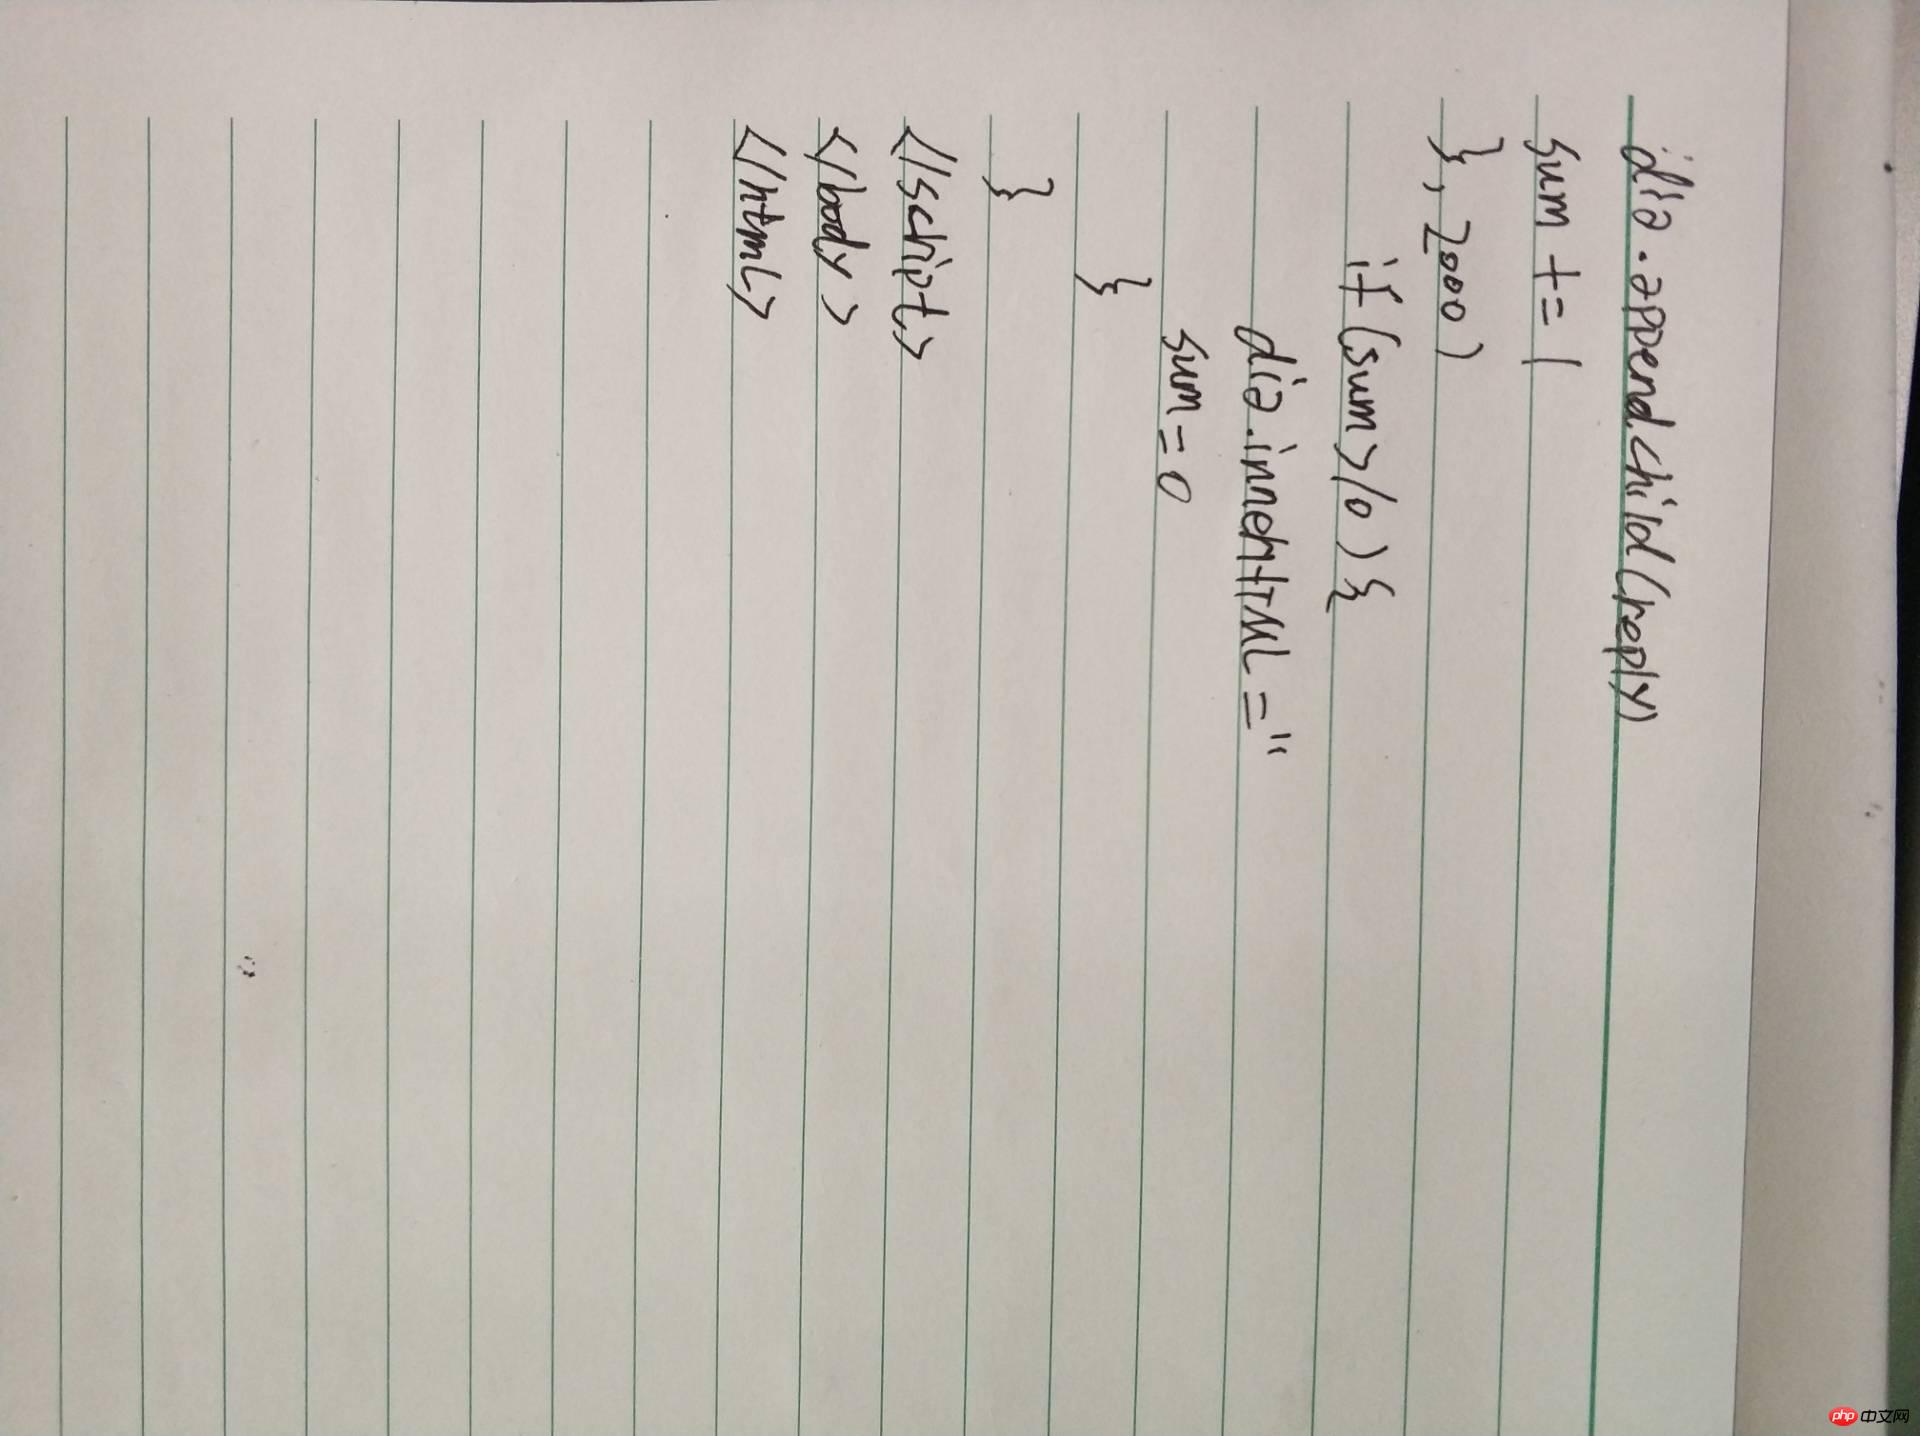 dia.appendchild(reply)
sum += 1
},2000)
if(sum>10){
dia.innerHTML=''
sum=0
}
}
</script>
</body>
</html>
php 中文网